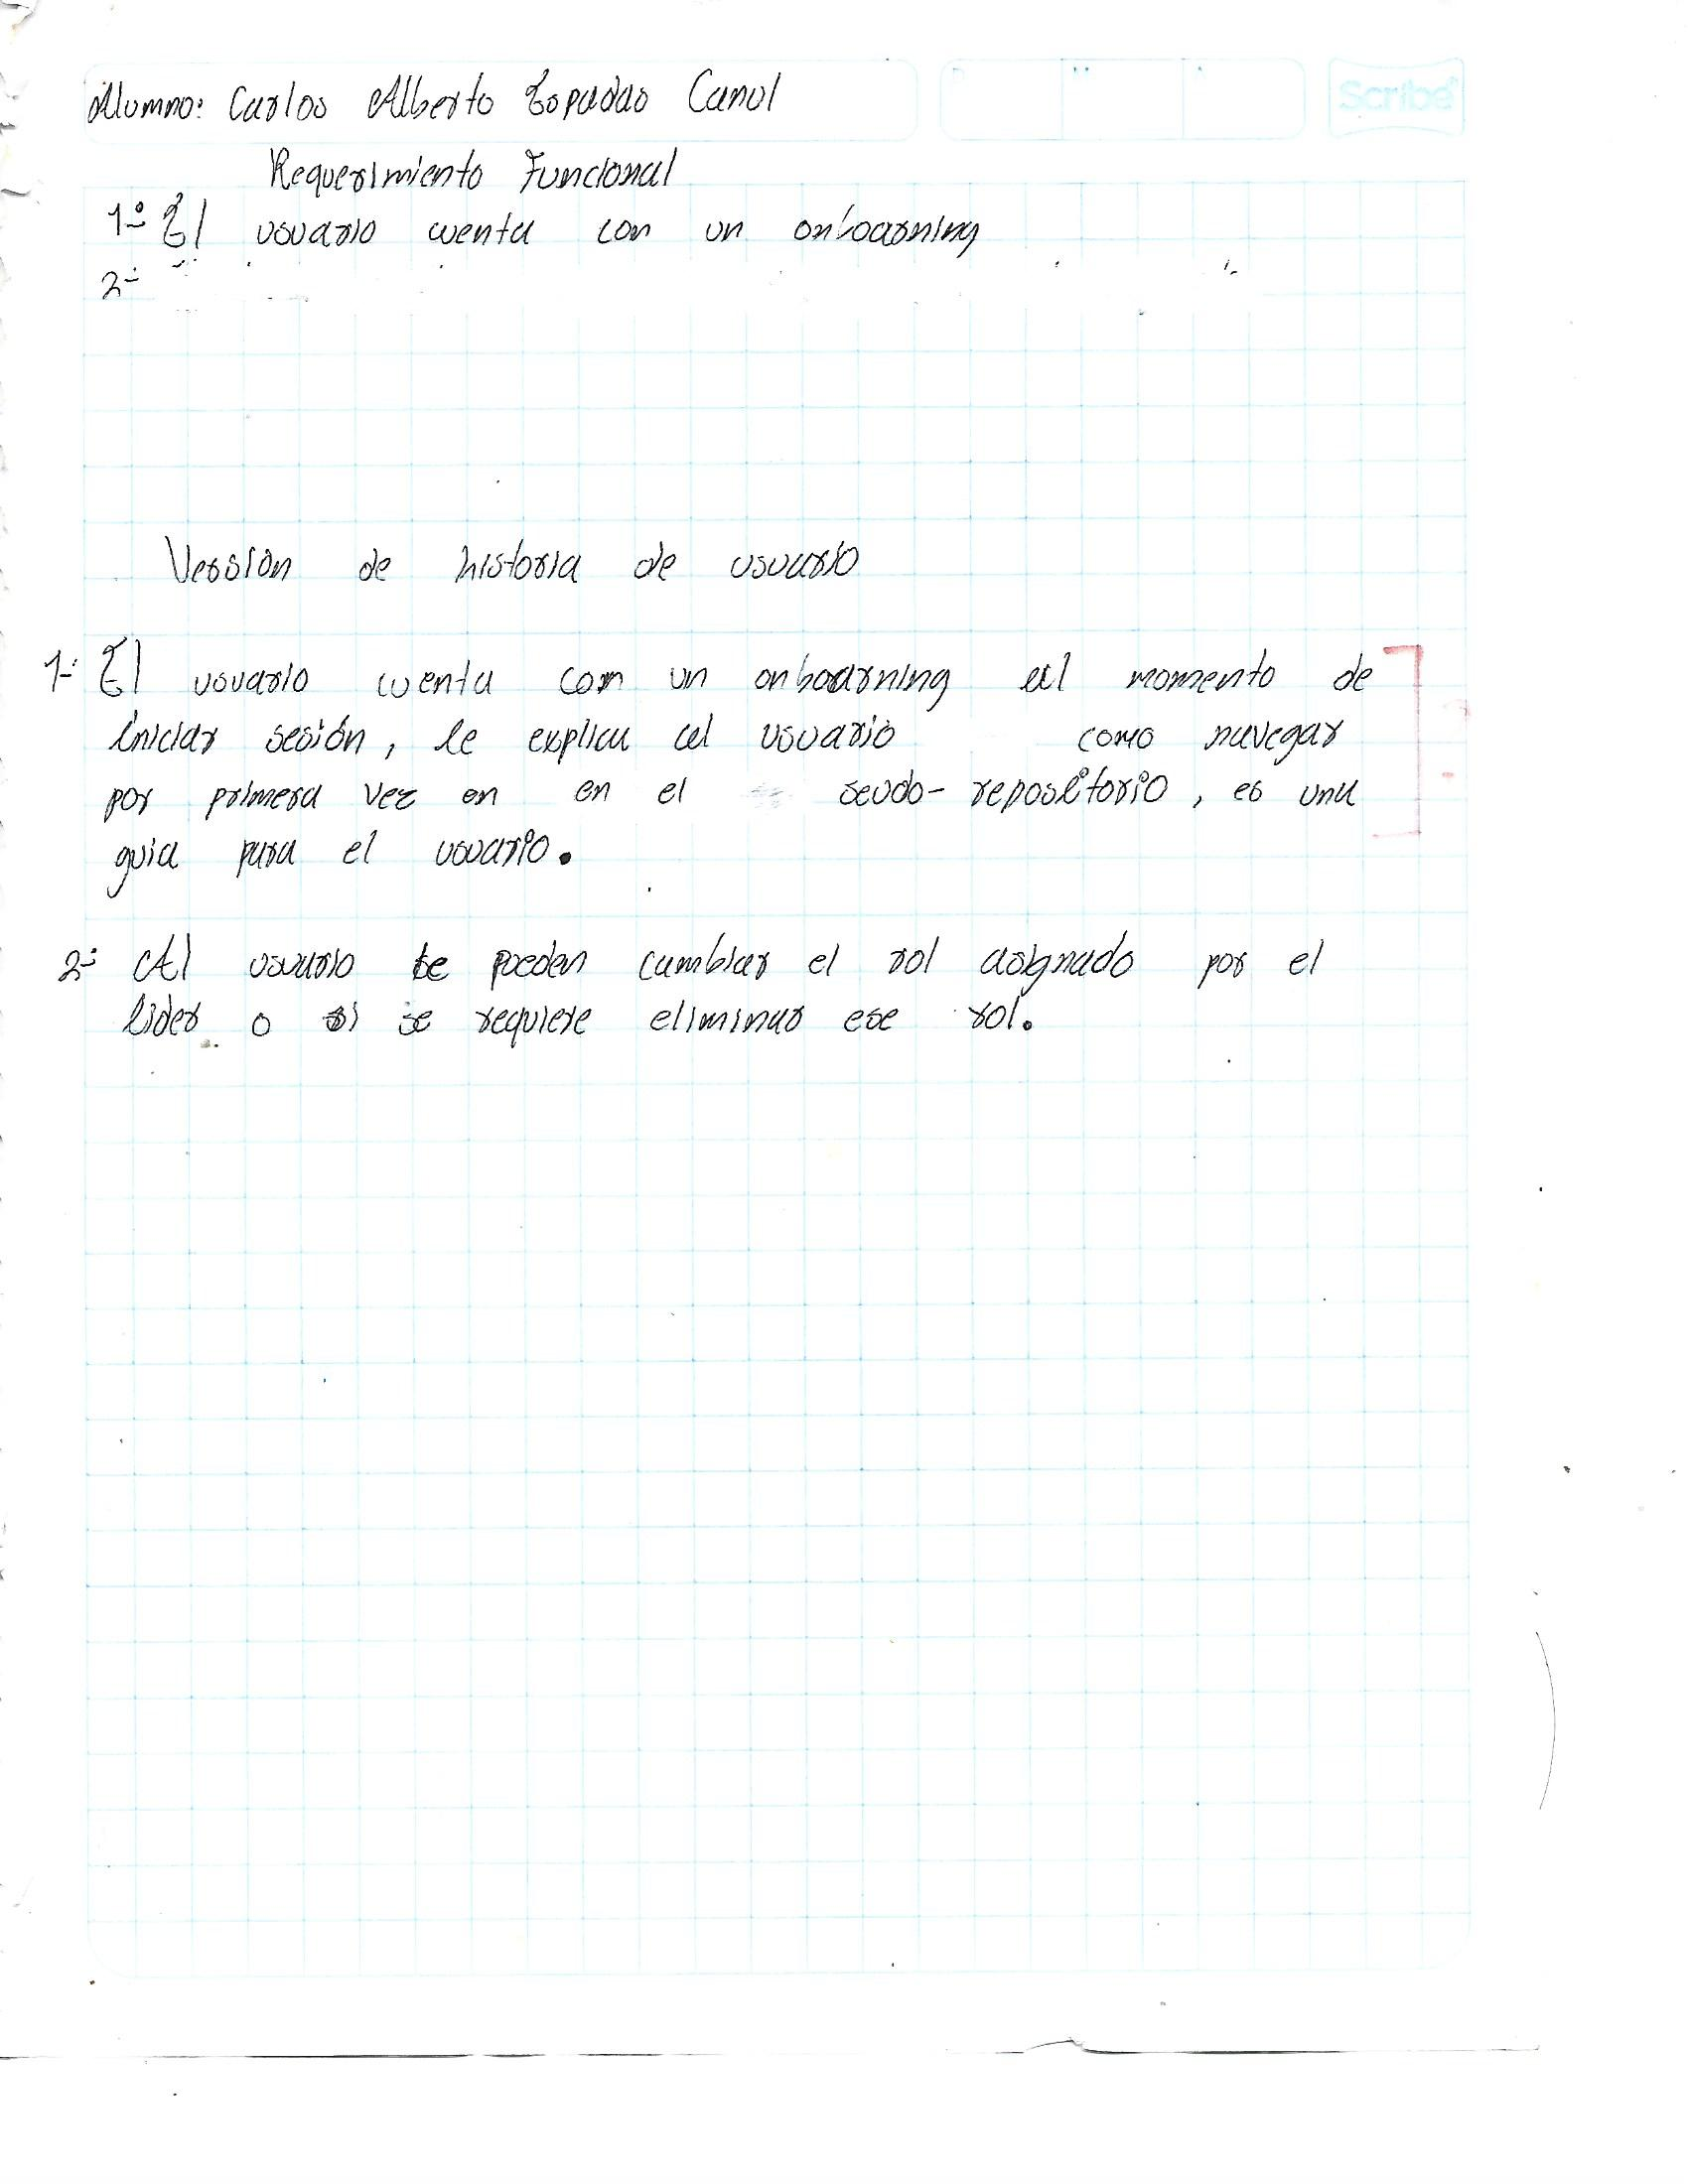 Alumno: Carlos Alberto Espadas Canul
Scribe
Requerimiento Funcional
1- El usuario cuenta con un onboarning
2-
Versión de historia de usuario
1- El usuario cuenta con un onboarning al momento de
iniciar sesión, le explica al usuario como navegar
por primera vez en en el seudo-repositorio, es una
guia para el usuario.
2- Al usuario te pueden cambiar el rol asignado por el
lider o si se requiere eliminar ese rol.